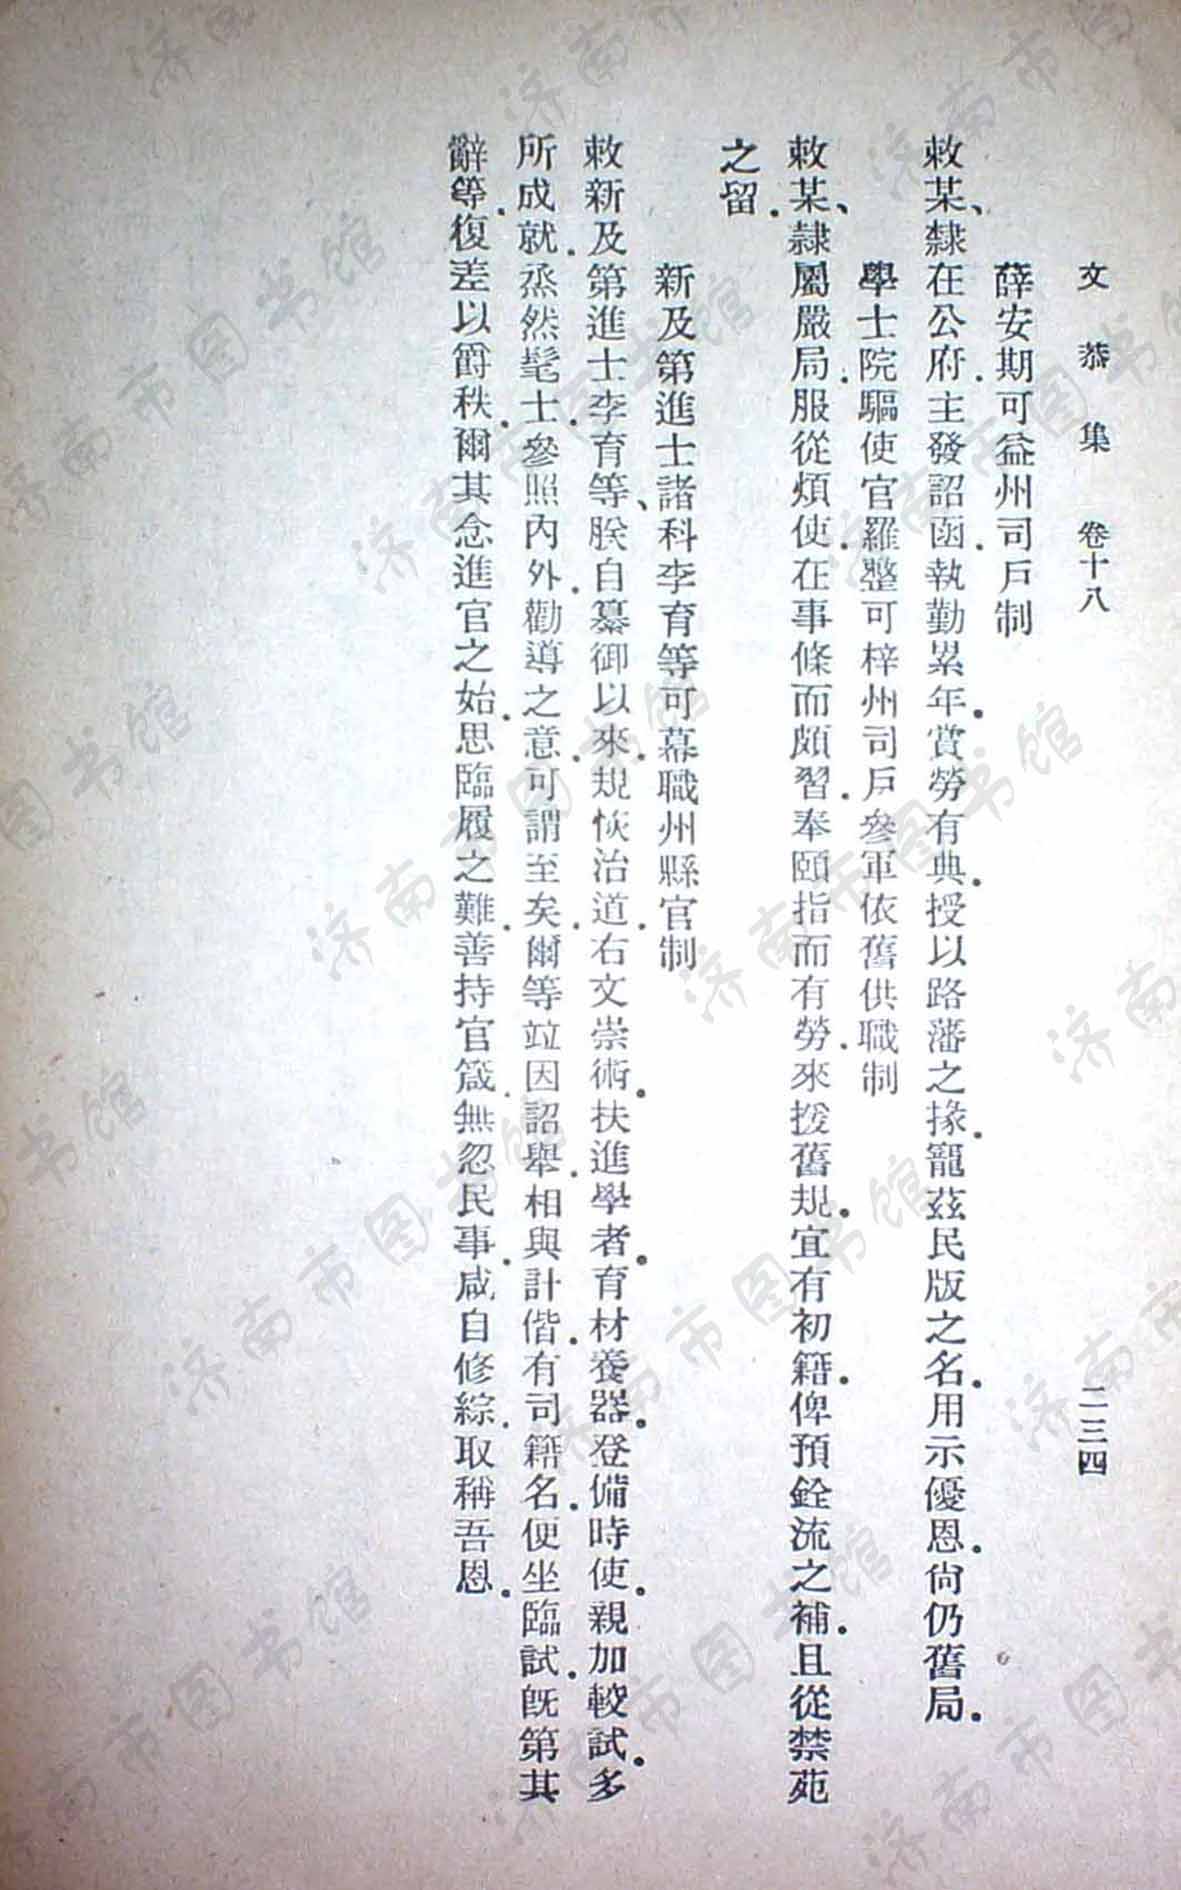 文恭集 卷十八 二三四
薛安期可益州司戶制
敕某、隸在公府.主發詔函.執勤累年.賞勞有典.授以路藩之掾.寵茲民版之名.用示優恩.尙仍舊局.
學士院驅使官羅整可梓州司戶參軍依舊供職制
敕某、隸屬嚴局.服從煩使.在事條而頗習.奉頤指而有勞.來援舊規.宜有初籍.俾預銓流之補.且從禁苑
之留.
新及第進士諸科李育等可幕職州縣官制
敕新及第進士李育等、朕自纂御以來.規恢治道.右文崇術.扶進學者.育材養器.登備時使.親加較試.多
所成就.烝然髦士.參照內外.勸導之意.可謂至矣.爾等竝因詔舉.相與計偕.有司籍名.便坐臨試.旣第其
辭等.復差以爵秩.爾其念進官之始.思臨履之難.善持官箴.無忽民事.咸自修綜.取稱吾恩.
济南市图书馆